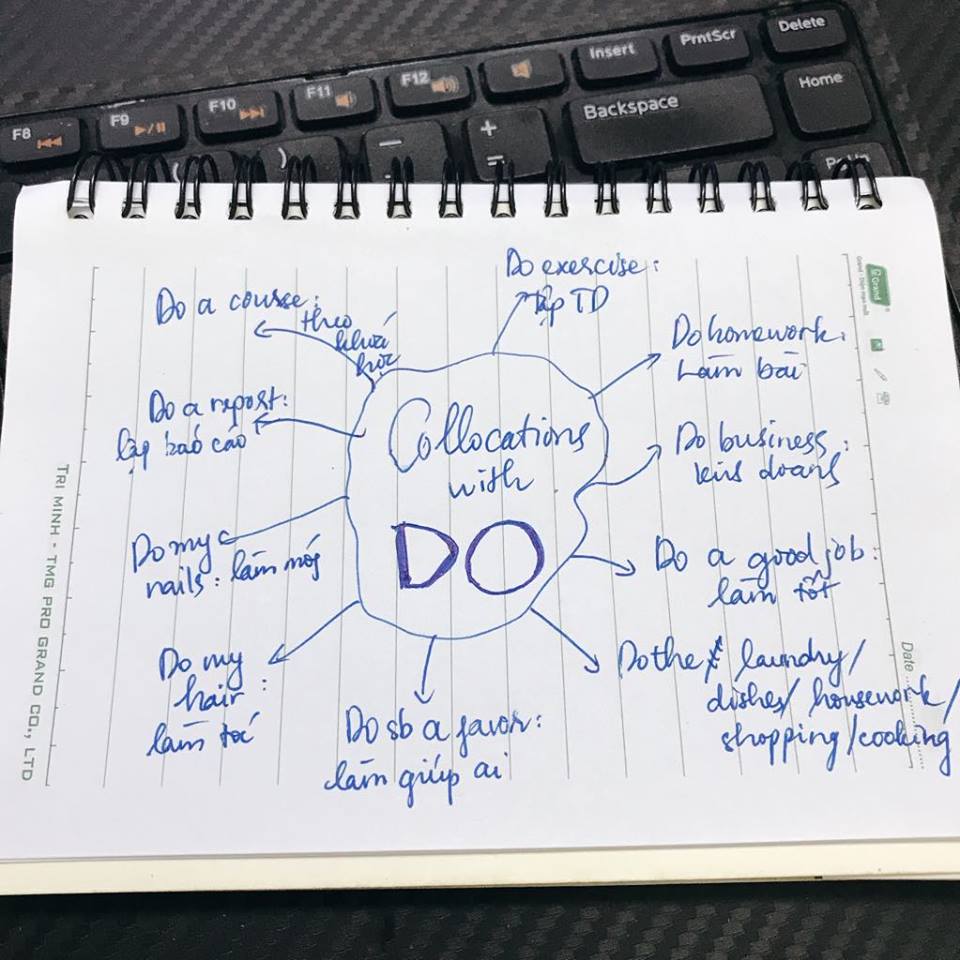 Delete
PrntScr
Insert
F12
F11
F10
F9
F8
Home
Backspace
+
=
Grand
Do exercise:
tập TD
Do a course:
theo
khoá
học
Do homework:
Làm bài
Do a report:
lập báo cáo
Collocations
with
DO
Do business:
kinh doanh
Do my
nails: làm móng
Do a good job:
làm tốt
Do my
hair:
làm tóc
Do the laundry/
dishes/housework/
shopping/cooking
Do sb a favor:
làm giúp ai
Date
TRI MINH - TMG PRO GRAND CO., LTD